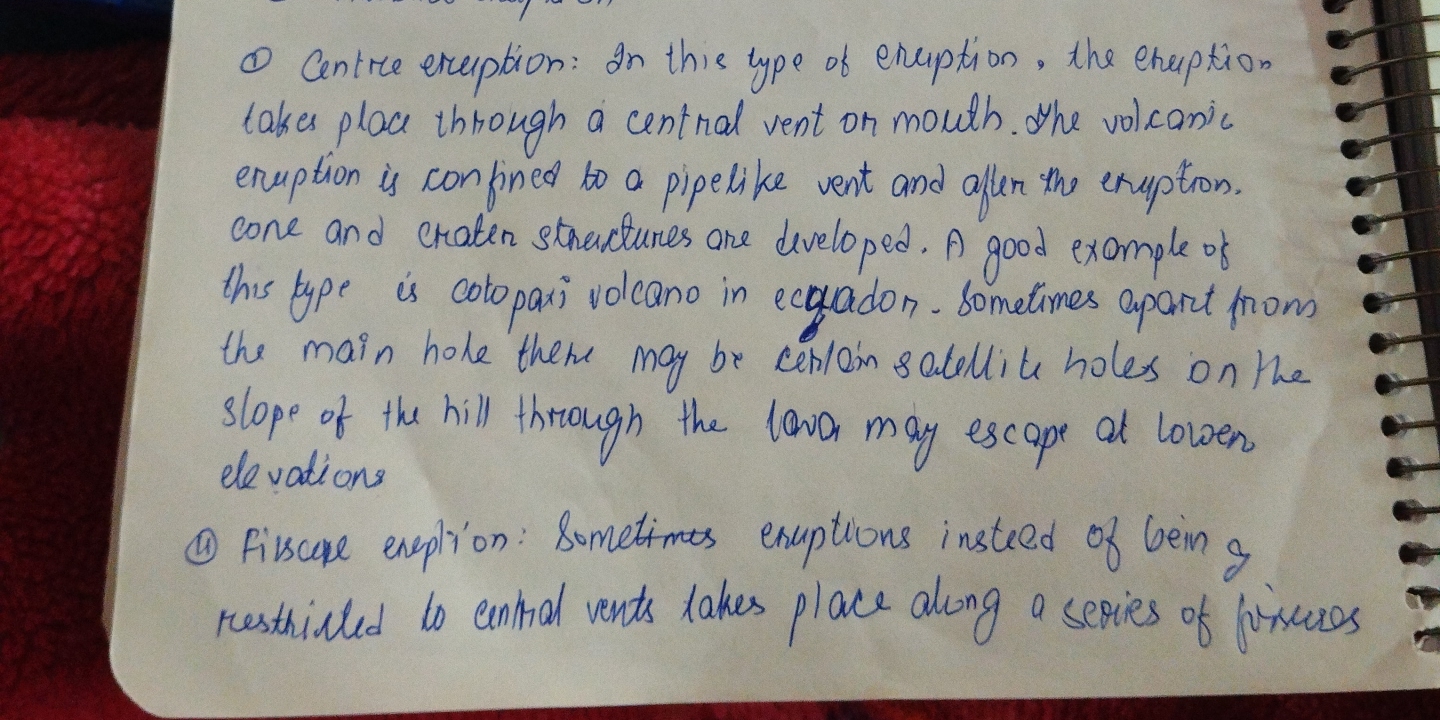 ① Centre eruption: In this type of eruption, the eruption
takes place through a central vent or mouth. The volcanic
eruption is confined to a pipelike vent and after the eruption.
cone and crater structures are developed. A good example of
this type is cotopaxi volcano in ecquador. Sometimes apart from
the main hole there may be certain satellite holes on the
slope of the hill through the lava may escape at lower
elevations
⑪ eruption: Sometimes eruptions instead of being
restricted to central vents takes place along a series of fissures